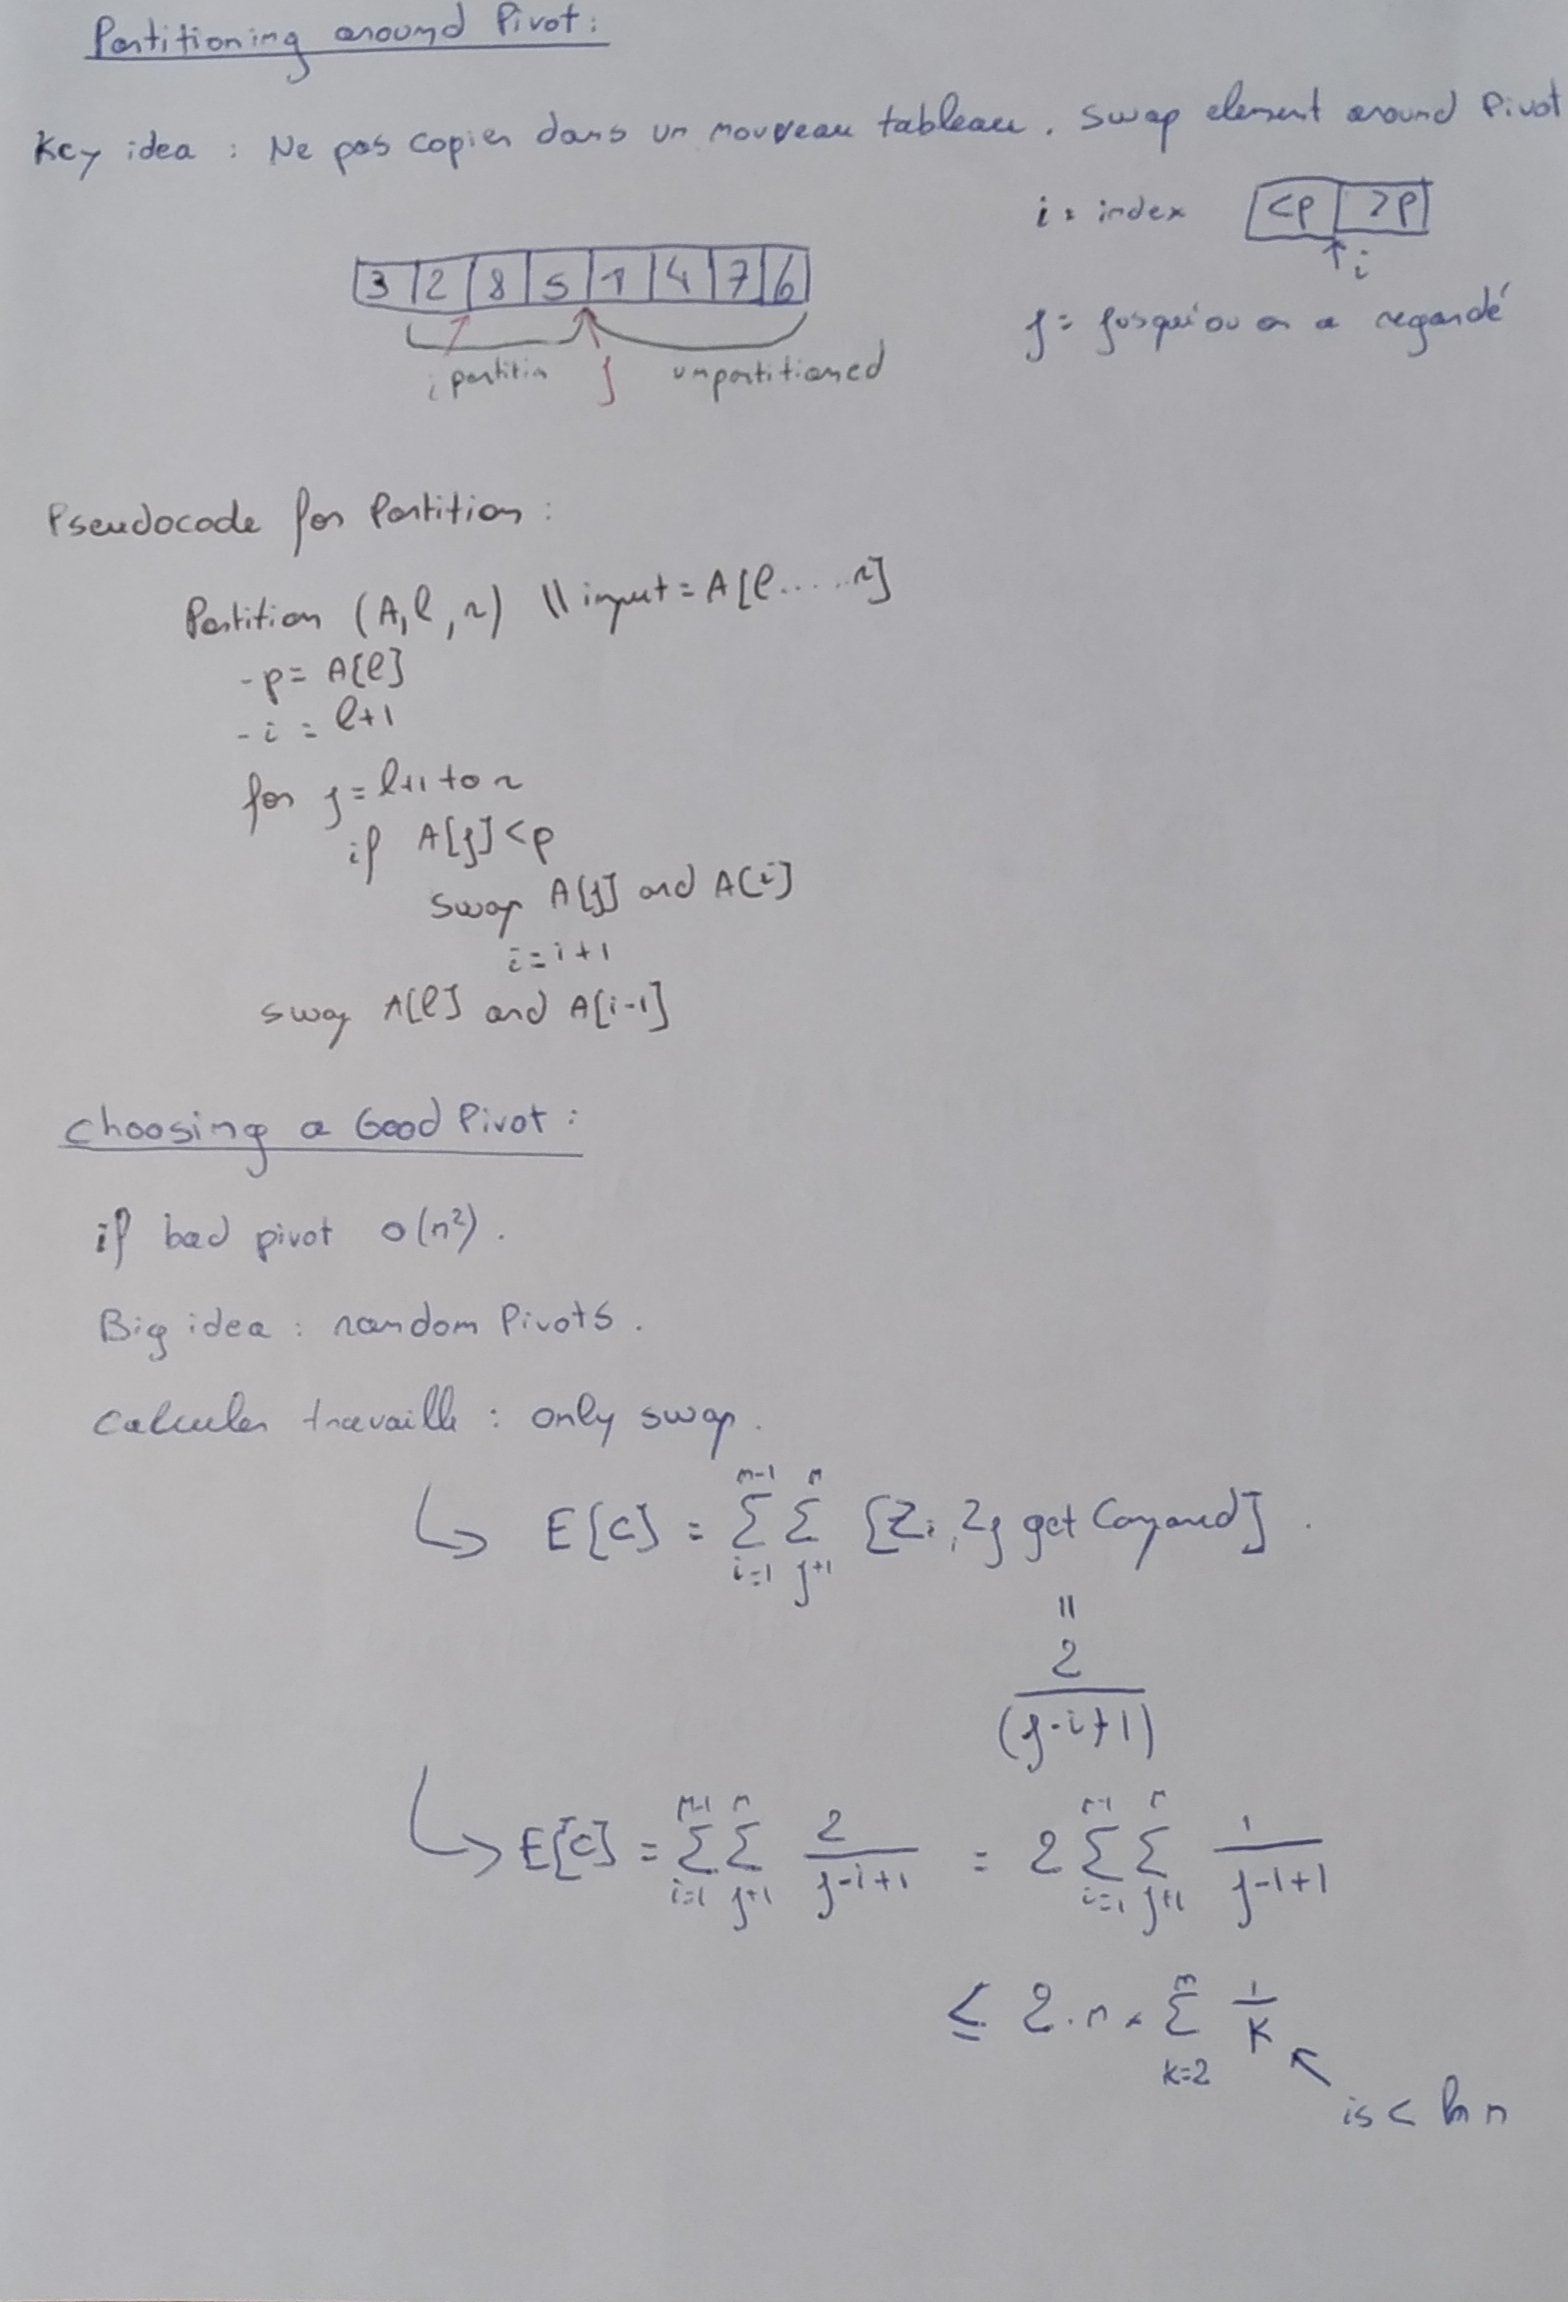 Partitioning around Pivot:
Key idea : Ne pas copier dans un nouveau tableau. Swap element around Pivot
i = index <p >p
i
3 2 8 5 1 4 7 6
j = jusqu'ou on a regardé
i partitin j unpartitioned
Pseudocode for Partition :
Partition (A, l, r) \\ input = A[l.....r]
- p = A[l]
- i = l+1
for j = l+1 to r
if A[j] < p
swap A[j] and A[i]
i = i+1
swap A[l] and A[i-1]
choosing a Good Pivot :
if bad pivot o(n²).
Big idea : random Pivots.
calculer travaille : only swap.
↳ E[C] = n-1 Σ i=1 n Σ j+1 [Zi, Zj get Compared].
||
2
(j-i+1)
↳ E[C] = n-1 Σ i=1 n Σ j+1 2 / j-i+1 = 2 n-1 Σ i=1 n Σ j+1 1 / j-i+1
≤ 2.n × n Σ k=2 1/K
is < ln n